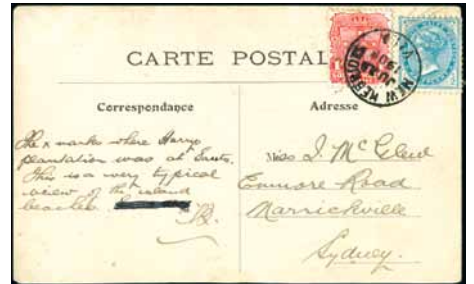 CARTE POSTAL
NEW HEBRIDES
VILA
Correspondance
Adresse
The x marks where Harry
plantation was at Santo.
This is a very typical
view of the island
beaches.
Miss I. McLeod
Enmore Road
Marrickville
Sydney.